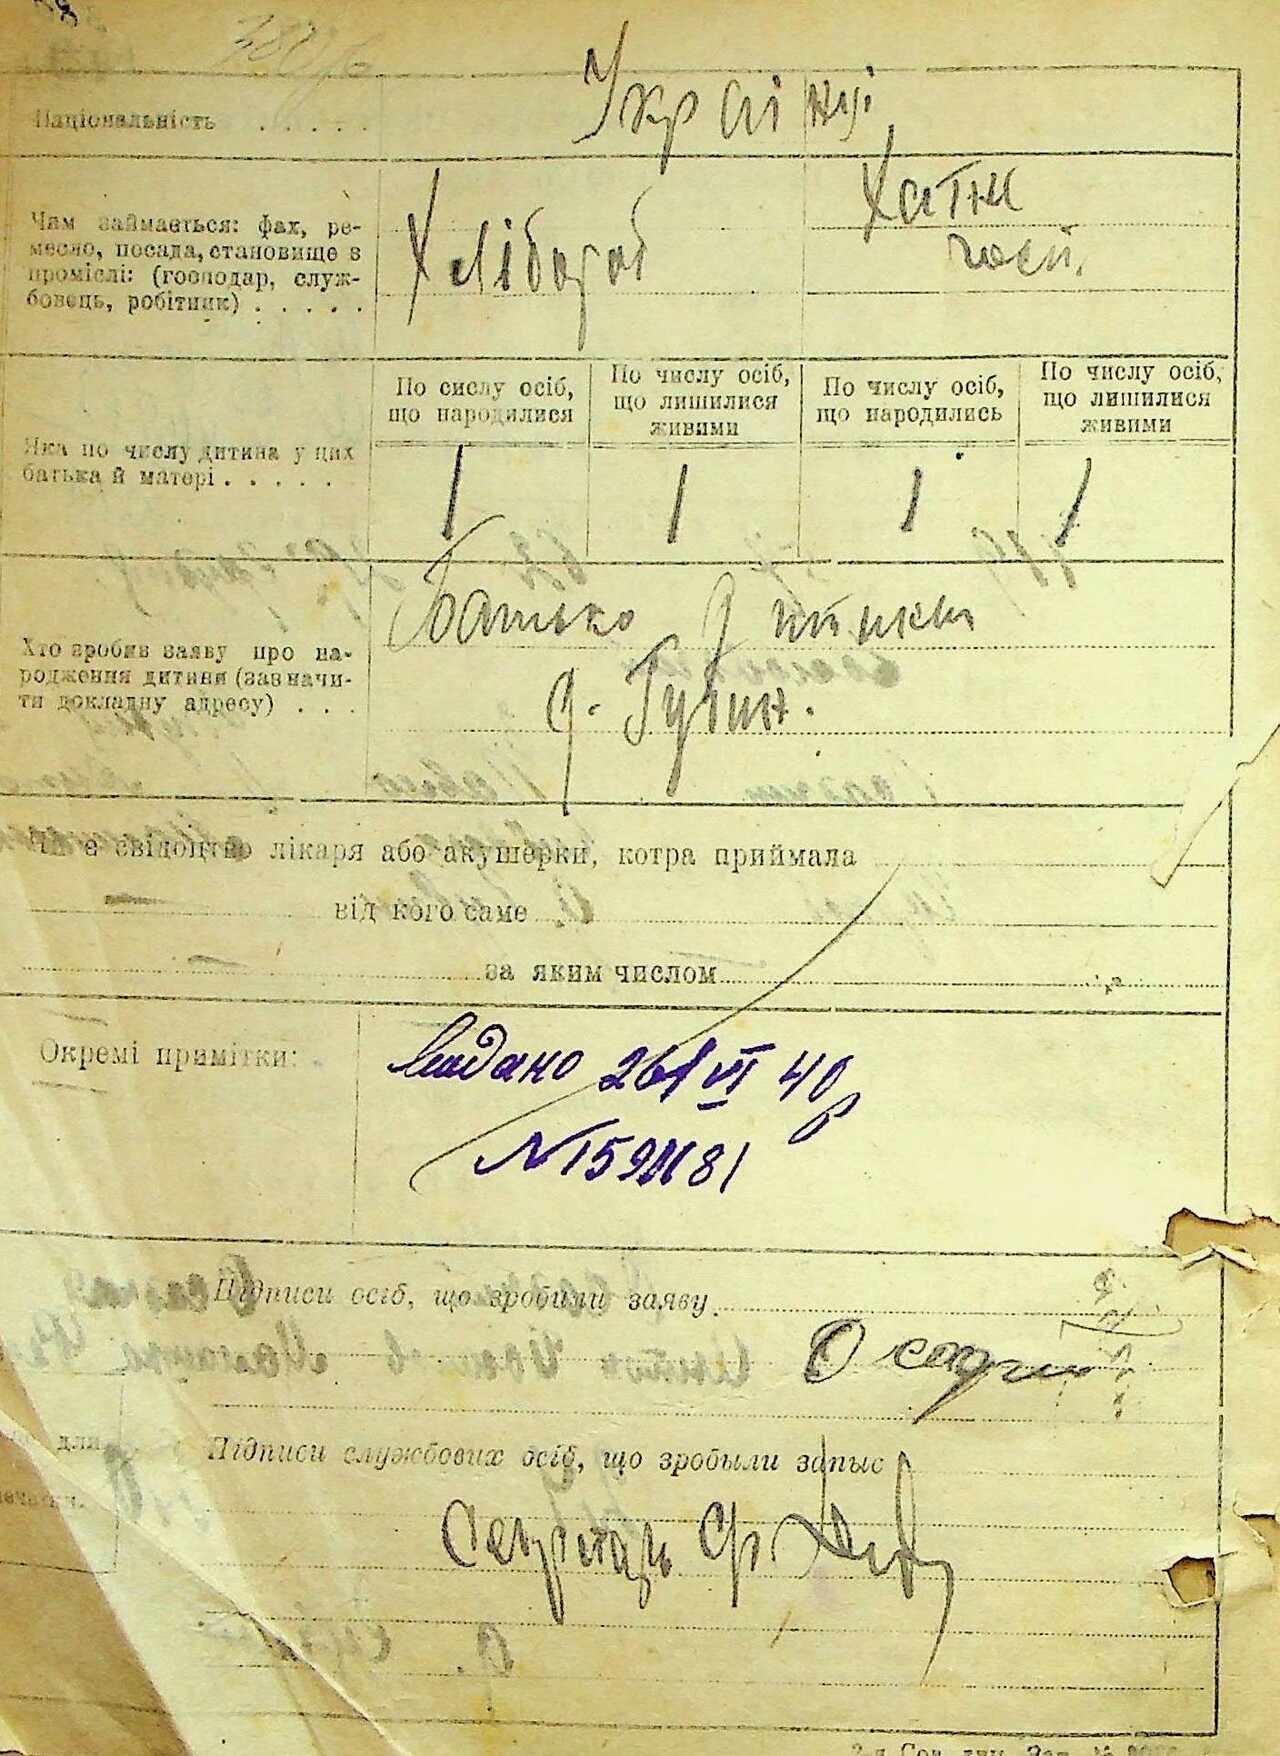 Національність . . . . .
Українці
Чим займається: фах, ре-
месло, посада, становище в
проміслі: (господар, служ-
бовець, робітник) . . . . .
Хлібороб
Хатня
госп.
Яка по числу дитина у цих
батька й матері . . . . .
По сислу осіб,
що народилися
По числу осіб,
що лишилися
живими
По числу осіб,
що народились
По числу осіб,
що лишилися
живими
1 1 1 1
Хто зробив заяву про на-
родження дитини (зазначи-
ти докладну адресу) . . .
Батько дитини
Чи є свідоцтво лікаря або акушерки, котра приймала
від кого саме
за яким числом
Окремі примітки:
Видано 26/VI 40 р
Підписи осіб, що зробили заяву
Підписи службових осіб, що зробыли запыс
Секретарь